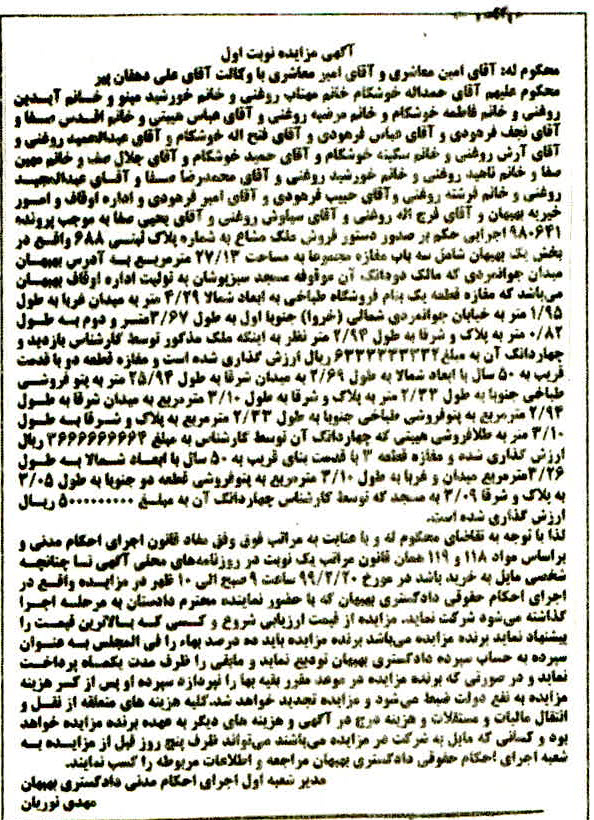 آگهی مزایده نوبت اول
محکوم له: آقای امین معاشری و آقای امیر معاشری با وکالت آقای علی دهقان پیر
محکوم علیهم آقای حمداله خوشکام خانم مهتاب روغنی و خانم خورشید مینو و خانم آیدین
روغنی و خانم فاطمه خوشکام و خانم مرضیه روغنی و آقای عباس هیبتی و خانم اقدس صفا و
آقای نجف فرهودی و آقای عباس فرهودی و آقای فتح اله خوشکام و آقای عبدالحمید روغنی و
آقای آرش روغنی و خانم سکینه خوشکام و آقای حمید خوشکام و آقای جلال صف و خانم مهین
صفا و خانم ناهید روغنی و خانم خورشید روغنی و آقای محمدرضا صفا و آقای عبدالمجید
روغنی و خانم فرشته روغنی وآقای حبیب فرهودی و آقای امیر فرهودی و اداره اوقاف و امور
خیریه بهبهان و آقای فرج اله روغنی و آقای سیاوش روغنی و آقای یحیی صفا به موجب پرونده
۹۸۰۶۴۱ اجرایی حکم بر صدور دستور فروش ملک مشاع به شماره پلاک ثبتی ۶۸۸ واقع در
بخش یک بهبهان شامل سه باب مغازه مجموعا به مساحت ۲۷/۱۳ مترمربع به آدرس بهبهان
میدان جوانمردی که مالک دودانگ آن موقوفه مسجد سبزپوشان به تولیت اداره اوقاف بهبهان
می‌باشد که مغازه قطعه یک بنام فروشگاه طباخی به ابعاد شمالا ۴/۲۹ متر به میدان غربا به طول
۱/۹۵ متر به خیابان جوانمردی شمالی (خروا) جنوبا اول به طول ۳/۶۷متر و دوم به طول
۰/۸۲ متر به پلاک و شرقا به طول ۲/۹۴ متر نظر به اینکه ملک مذکور توسط کارشناس بازدید و
چهاردانگ آن به مبلغ ۶۳۳۳۳۳۳۳۳۲ ریال ارزش گذاری شده است و مغازه قطعه دو با قدمت
قریب به ۵۰ سال با ابعاد شمالا به طول ۲/۶۹ به میدان شرقا به طول ۲۵/۹۴ متر به پتو فروشی
طباخی جنوبا به طول ۲/۳۳ متر به پلاک و شرقا به طول ۳/۱۰ مترمربع به میدان شرقا به طول
۲/۹۴ مترمربع به پتوفروشی طباخی جنوبا به طول ۲/۳۳ مترمربع به پلاک و شرقا به طول
۳/۱۰ متر به طلافروشی هیبتی که چهاردانگ آن توسط کارشناس به مبلغ ۳۶۶۶۶۶۶۶۶۴ ریال
ارزش گذاری شده و مغازه قطعه ۳ با قدمت بنای قریب به ۵۰ سال با ابعاد شمالا به طول
۳/۲۶مترمربع میدان و غربا به طول ۳/۱۰ مترمربع به پتوفروشی قطعه دو جنوبا به طول ۳/۰۵
به پلاک و شرقا ۳/۰۹ به مسجد که توسط کارشناس چهاردانگ آن به مبلغ ۵۰۰۰۰۰۰۰۰۰ ریال
ارزش گذاری شده است.
لذا با توجه به تقاضای محکوم له و با عنایت به مراتب فوق وفق مفاد قانون اجرای احکام مدنی و
براساس مواد ۱۱۸ و ۱۱۹ همان قانون مراتب یک نوبت در روزنامه‌های محلی آگهی تا چنانچه
شخصی مایل به خرید باشد در مورخ ۹۹/۲/۲۰ ساعت ۹ صبح الی ۱۰ ظهر در مزایده واقع در
اجرای احکام حقوقی دادگستری بهبهان که با حضور نماینده محترم دادستان به مرحله اجرا
گذاشته می‌شود شرکت نماید. مزایده از قیمت ارزیابی شروع و کسی که بالاترین قیمت را
پیشنهاد نماید برنده مزایده می‌باشد برنده مزایده باید ده درصد بهاء را فی المجلس به عنوان
سپرده به حساب سپرده دادگستری بهبهان تودیع نماید و مابقی را ظرف مدت یکماه پرداخت
نماید و در صورتی که برنده مزایده در موعد مقرر بقیه بها را نپردازد سپرده او پس از کسر هزینه
مزایده به نفع دولت ضبط می‌شود و مزایده تجدید خواهد شد.کلیه هزینه های متعلقه از نقل و
انتقال مالیات و مستقلات و هزینه درج در آگهی و هزینه های دیگر به عهده برنده مزایده خواهد
بود و کسانی که مایل به شرکت در مزایده می‌باشند می‌تواند ظرف پنج روز قبل از مزایده به
شعبه اجرای احکام حقوقی دادگستری بهبهان مراجعه و اطلاعات مربوطه را کسب نمایند.
مدیر شعبه اول اجرای احکام مدنی دادگستری بهبهان
مهدی نوریان